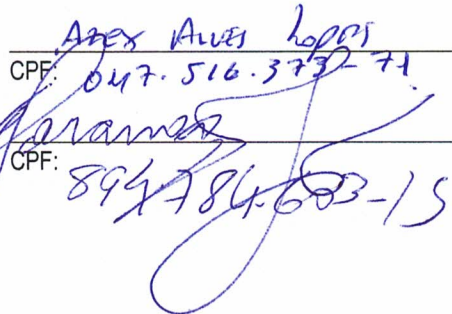 Alex Alves Lopes
CPF: 047.516.373-71
CPF:
894784.603-15